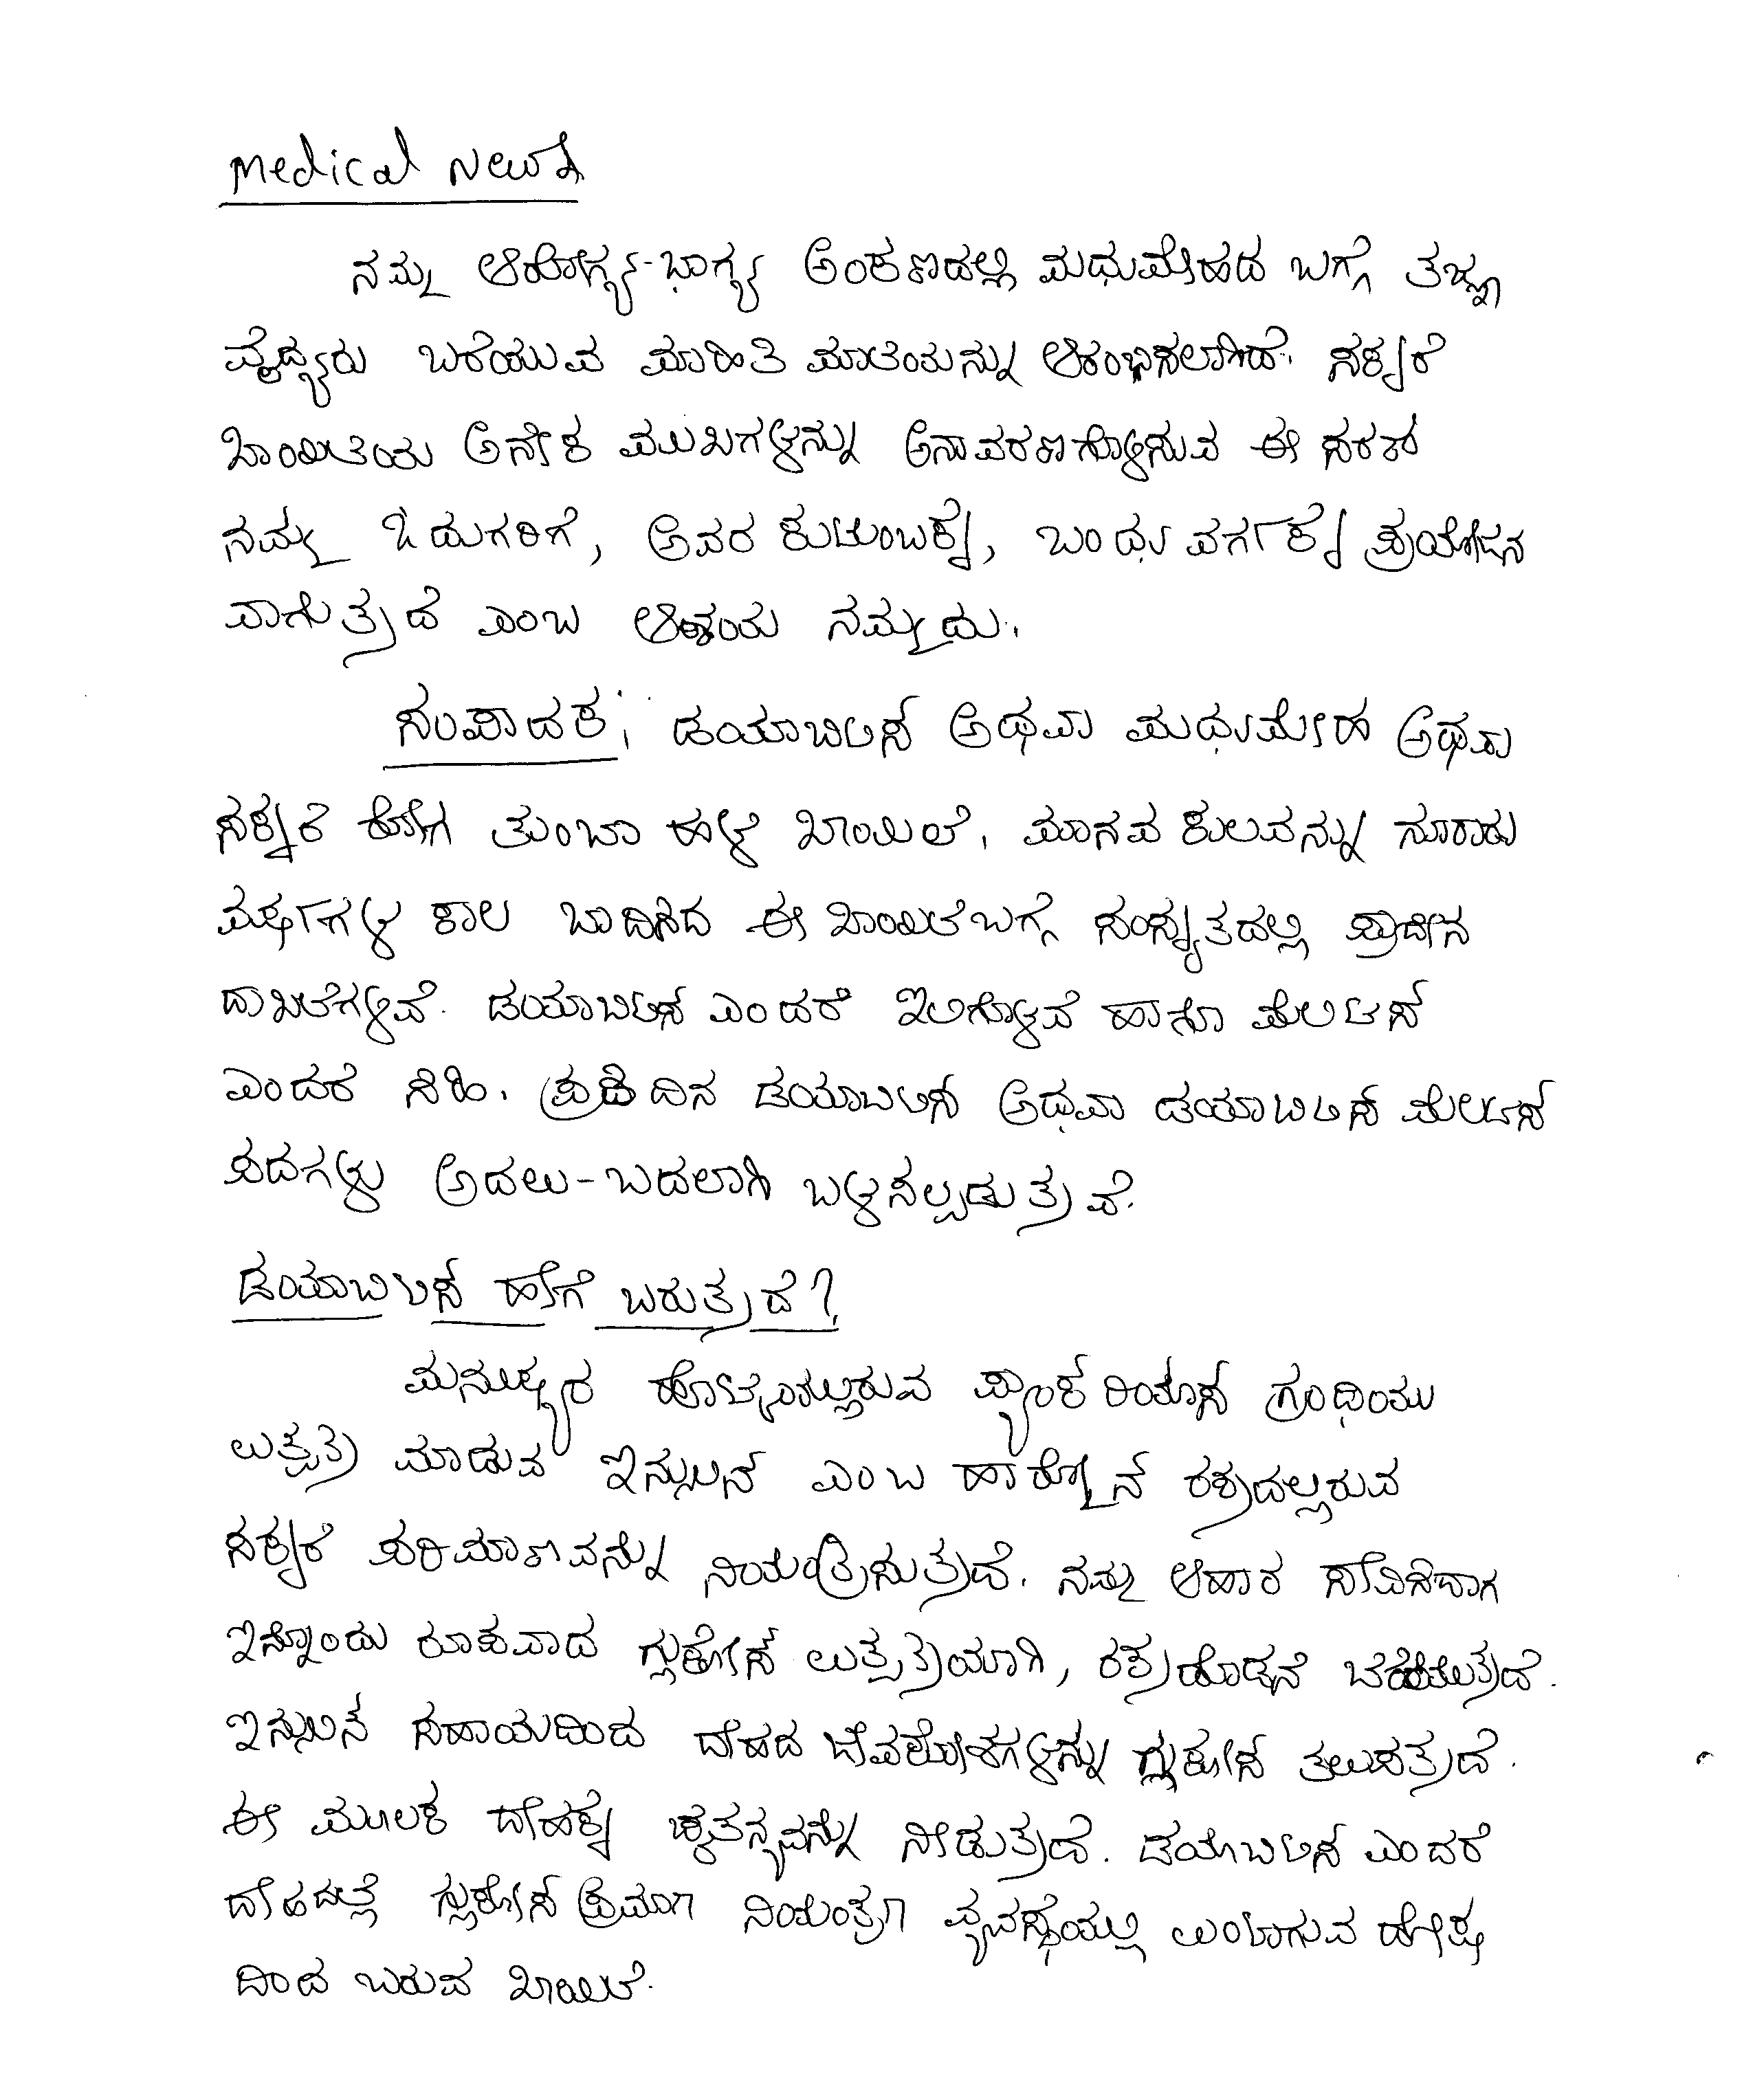 Medical News
ನಮ್ಮ ಆರೋಗ್ಯ-ಭಾಗ್ಯ ಅಂಕಣದಲ್ಲಿ ಮಧುಮೇಹದ ಬಗ್ಗೆ ತಜ್ಞ
ವೈದ್ಯರು ಬರೆಯುವ ಮಾಹಿತಿ ಮಾಲೆಯನ್ನು ಆರಂಭಿಸಲಾಗಿದೆ. ಸಕ್ಕರೆ
ಖಾಯಿಲೆಯ ಅನೇಕ ಮುಖಗಳನ್ನು ಅನಾವರಣಗೊಳಿಸುವ ಈ ಸರಣಿ
ನಮ್ಮ ಓದುಗರಿಗೆ, ಅವರ ಕುಟುಂಬಕ್ಕೆ, ಬಂಧು ವರ್ಗಕ್ಕೆ ಪ್ರಯೋಜನ
ವಾಗುತ್ತದೆ ಎಂಬ ಆಶಯ ನಮ್ಮದು.
ಸಂಪಾದಕ: ಡಯಾಬಿಟಿಸ್ ಅಥವಾ ಮಧುಮೇಹ ಅಥವಾ
ಸಕ್ಕರೆ ರೋಗ ತುಂಬಾ ಹಳೆ ಖಾಯಿಲೆ. ಮಾನವ ಕುಲವನ್ನು ನೂರಾರು
ವರ್ಷಗಳ ಕಾಲ ಬಾಧಿಸಿದ ಈ ಖಾಯಿಲೆ ಬಗ್ಗೆ ಸಂಸ್ಕೃತದಲ್ಲಿ ಪ್ರಾಚೀನ
ದಾಖಲೆಗಳಿವೆ. ಡಯಾಬಿಟಿಸ್ ಎಂದರೆ ಇಳಿಗೊಳವೆ ಹಾಗೂ ಮೆಲಿಟಸ್
ಎಂದರೆ ಸಿಹಿ. ಪ್ರತಿ ದಿನ ಡಯಾಬಿಟಿಸ್ ಅಥವಾ ಡಯಾಬಿಟಿಸ್ ಮೆಲಿಟಸ್
ಪದಗಳು ಅದಲು-ಬದಲಾಗಿ ಬಳಸಲ್ಪಡುತ್ತವೆ.
ಡಯಾಬಿಟಿಸ್ ಹೇಗೆ ಬರುತ್ತದೆ?
ಮನುಷ್ಯರ ಹೊಟ್ಟೆಯಲ್ಲಿರುವ ಪ್ಯಾಂಕ್ರಿಯಾಸ್ ಗ್ರಂಥಿಯು
ಉತ್ಪತ್ತಿ ಮಾಡುವ ಇನ್ಸುಲಿನ್ ಎಂಬ ಹಾರ್ಮೋನ್ ರಕ್ತದಲ್ಲಿರುವ
ಸಕ್ಕರೆ ಪರಿಮಾಣವನ್ನು ನಿಯಂತ್ರಿಸುತ್ತದೆ. ನಮ್ಮ ಆಹಾರ ಸೇವಿಸಿದಾಗ
ಇನ್ನೊಂದು ರೂಪವಾದ ಗ್ಲುಕೋಸ್ ಉತ್ಪತ್ತಿಯಾಗಿ, ರಕ್ತದೊಡನೆ ಬೆರೆಯುತ್ತದೆ.
ಇನ್ಸುಲಿನ್ ಸಹಾಯದಿಂದ ದೇಹದ ಜೀವಕೋಶಗಳನ್ನು ಗ್ಲುಕೋಸ್ ತಲುಪತ್ತದೆ.
ಈ ಮೂಲಕ ದೇಹಕ್ಕೆ ಚೈತನ್ಯವನ್ನು ನೀಡುತ್ತದೆ. ಡಯಾಬಿಟಿಸ್ ಎಂದರೆ
ದೇಹದಲ್ಲಿ ಗ್ಲುಕೋಸ್ ಪ್ರಮಾಣ ನಿಯಂತ್ರಣ ವ್ಯವಸ್ಥೆಯಲ್ಲಿ ಉಂಟಾಗುವ ದೋಷ
ದಿಂದ ಬರುವ ಖಾಯಿಲೆ.